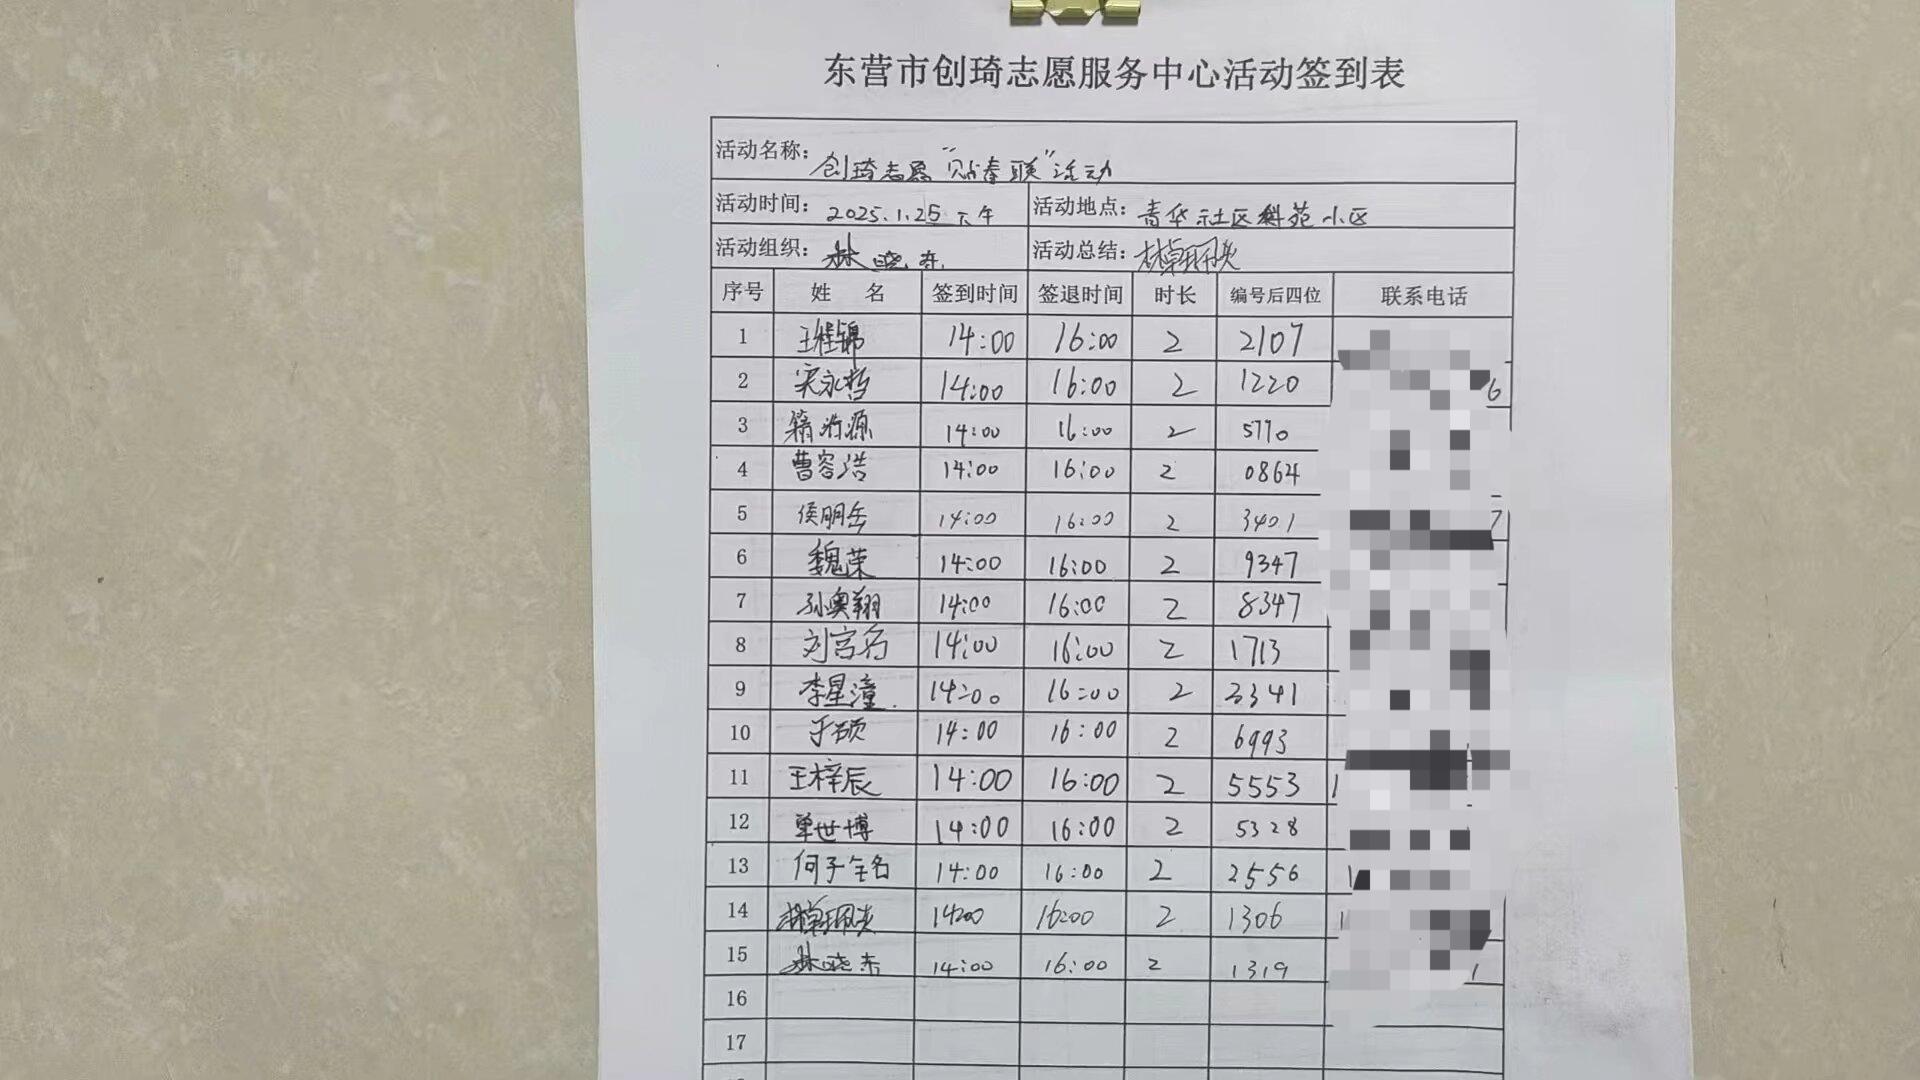 东营市创琦志愿服务中心活动签到表
活动名称： 创琦志愿“贴春联”活动
活动时间： 2025.1.25 下午 活动地点： 青华社区科苑小区
活动组织： 林晓东 活动总结：
序号 姓 名 签到时间 签退时间 时长 编号后四位 联系电话
1 王程锦 14:00 16:00 2 2107
2 宋永哲 14:00 16:00 2 1220 6
3 源 14:00 16:00 2 5770
4 曹容浩 14:00 16:00 2 0864
5 侯明岳 14:00 16:00 2 3401 7
6 魏荣 14:00 16:00 2 9347
7 孙奥翔 14:00 16:00 2 8347
8 刘宫 14:00 16:00 2 1713
9 李星潼 14:00 16:00 2 3341
10 于硕 14:00 16:00 2 6993
11 王梓辰 14:00 16:00 2 5553 1
12 单世博 14:00 16:00 2 5328
13 何子 14:00 16:00 2 2556 1
14 14:00 16:00 2 1306 1
15 林晓东 14:00 16:00 2 1319 1
16
17